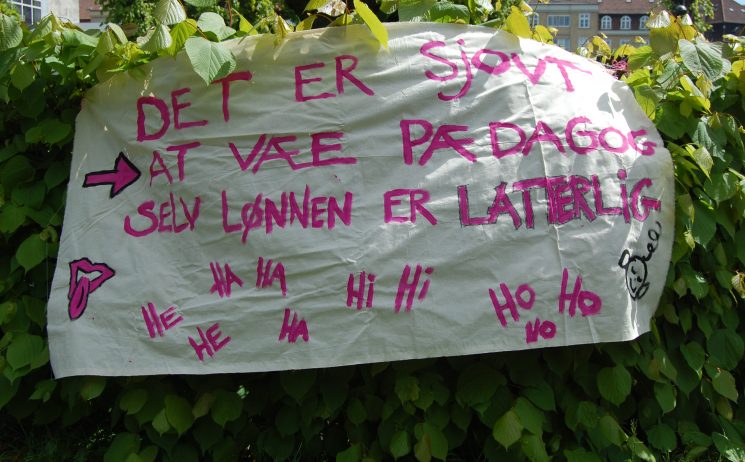 DET ER SJOVT
AT VÆE PÆDAGOG
SELV LØNNEN ER LATTERLIG
HE HA HA HI HI HO HO
HE HA HO